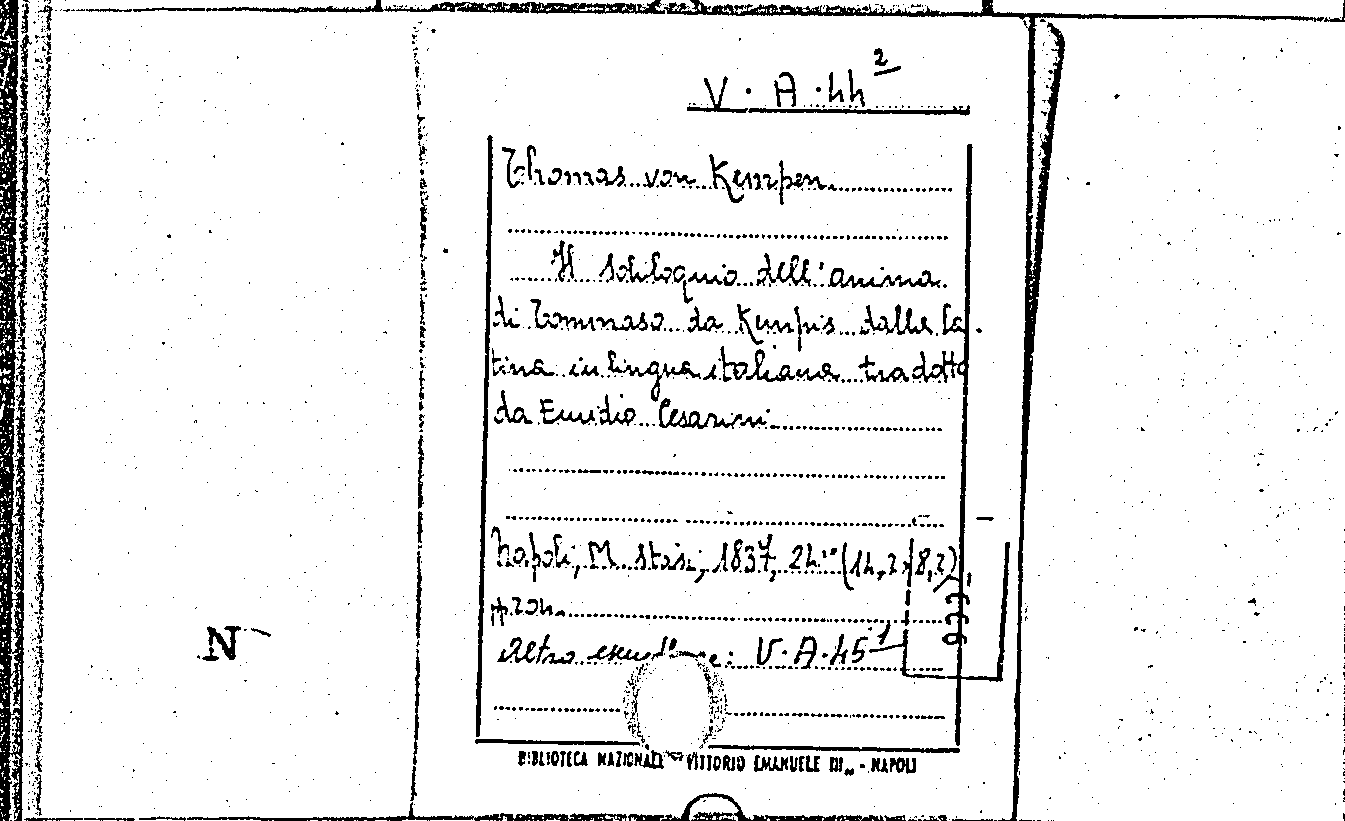 V. A. 44 2
Thomas von Kempen.
Il soliloquio dell'anima
di Tommaso da Kempis dalla la
tina in lingua italiana tradotto
da Emidio Cesarini.
Napoli, M. Stasi, 1837, 24º (14,2×8,2)
pp. 204.
Altro V. A. 45 1
N
BIBLIOTECA NAZIONALE VITTORIO EMANUELE III - NAPOLI